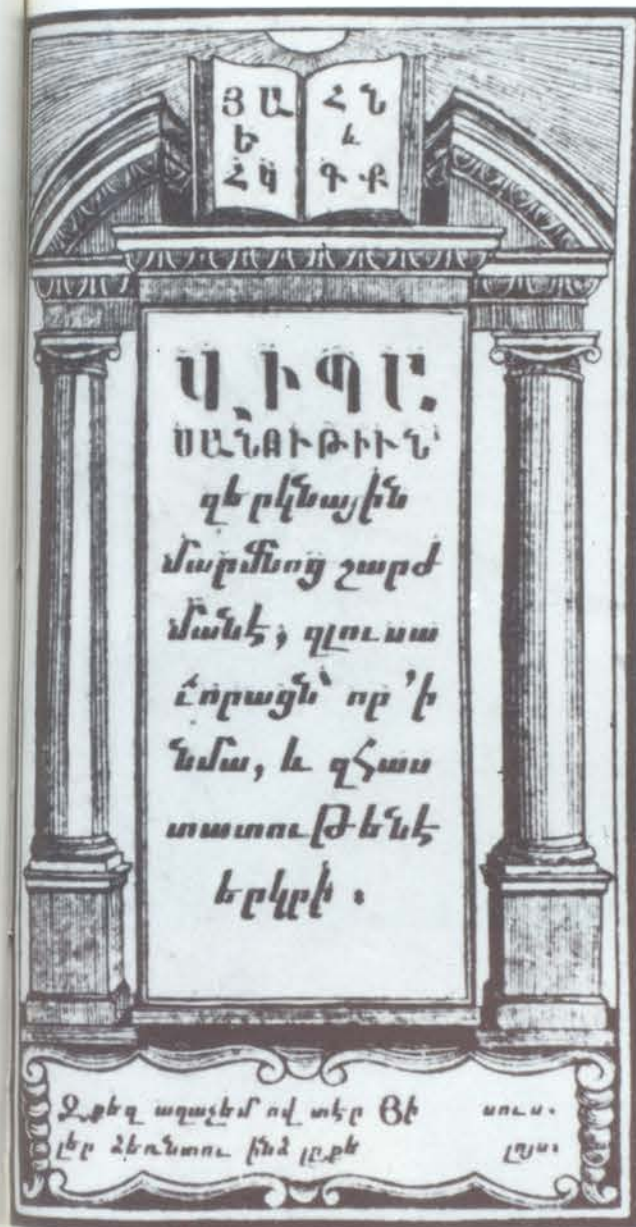 Յ Ա Հ Ն
Ե և
Հ Կ Գ Ք
ՎԻՊԱ
ՍԱՆՈՒԹԻՒՆ՝
զերկնային
մարմնոց շարժ
մանէ, զլուսա
ւորացն՝ որ ՚ի
նմա, և զՀաս
տատութենէ
երկրի .
Զքեզ աղաչեմ ով տէր Յի սուս.
լեր ձեռնտու ինձ լոյս: